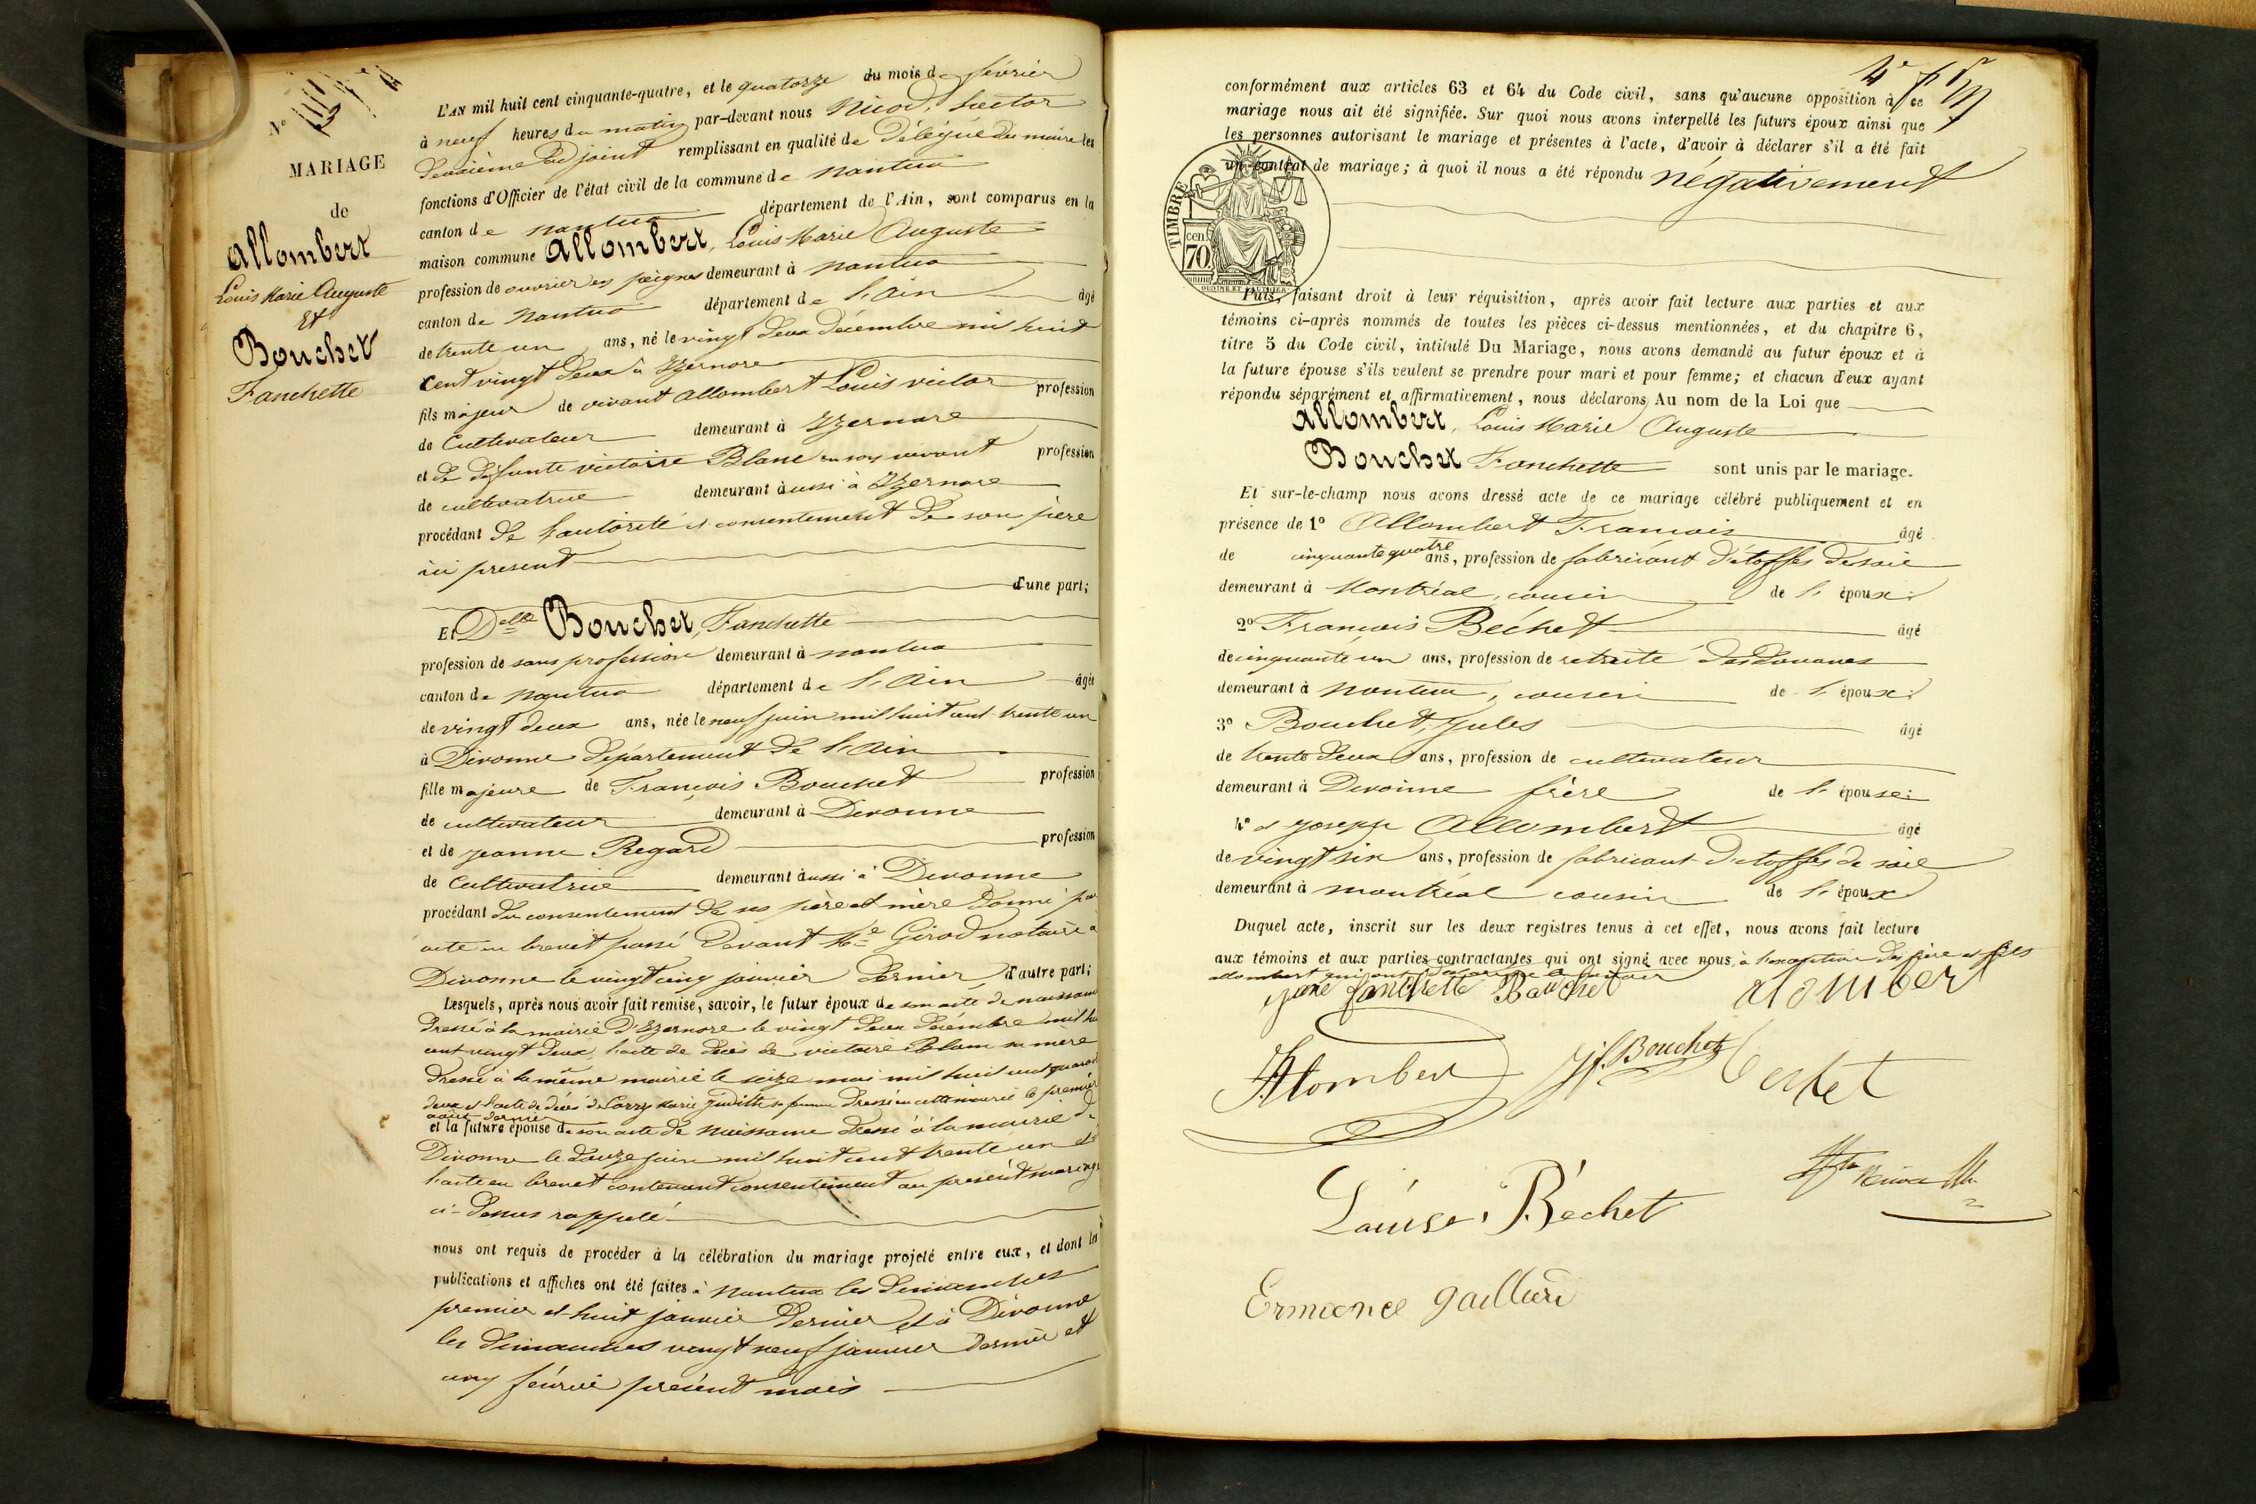 N°
MARIAGE
de
Allombert
Louis Marie Auguste
Et
Bouchet
Fanchette
L'AN mil huit cent cinquante-quatre, et le quatorze du mois de février
à neuf heures du matin par-devant nous Nicod, hector
deuxième adjoint remplissant en qualité de Délégué du maire les
fonctions d'Officier de l'état civil de la commune de nantua
canton de nantua département de l'Ain, sont comparus en la
maison commune Allombert, Louis Marie Auguste
profession de ouvrier en peignes demeurant à nantua
canton de nantua département de l'ain âgé
de trente un ans, né le vingt deux décembre mil huit
cent vingt deux à Izernore
fils majeur de vivant allombert Louis victor profession
de Cultivateur demeurant à Izernore
et de défunte victoire Blanc en son vivant profession
de cultivatrice demeurant aussi à Izernore
procédant de l'autorité et consentement de son père
ici présent
d'une part;
Et Delle Bouchet, Fanchette
profession de sans profession demeurant à nantua
canton de nantua département de l'ain âgée
de vingt deux ans, née le neuf juin mil huit cent trente un
à Divonne département de l'ain
fille majeure de François Bouchet profession
de cultivateur demeurant à Divonne
et de jeanne Regard profession
de Cultivatrice demeurant aussi à Divonne
procédant du consentement de ses père et mère donné par
acte en brevet passé devant Me Girod notaire à
Divonne le vingt cinq janvier dernier d'autre part;
Lesquels, après nous avoir fait remise, savoir, le futur époux de son acte de naissance
dressé à la mairie d'Izernore le vingt deux décembre mil huit
cent vingt deux, l'acte de décès de victoire Blanc sa mère
dressé à la même mairie le seize mai mil huit cent quarante
deux et l'acte de décès de Marie judith sa femme dressé en cette mairie le premier
août dernier
et la future épouse de son acte de naissance dressé à la mairie de
Divonne le douze juin mil huit cent trente un et
l'acte en brevet contenant consentement au présent mariage
ci-dessus rappelé
nous ont requis de procéder à la célébration du mariage projeté entre eux, et dont les
publications et affiches ont été faites à nantua les dimanches
premier et huit janvier dernier et à Divonne
les dimanches vingt neuf janvier dernier et
cinq février présent mois
conformément aux articles 63 et 64 du Code civil, sans qu'aucune opposition à ce
mariage nous ait été signifiée. Sur quoi nous avons interpellé les futurs époux ainsi que
les personnes autorisant le mariage et présentes à l'acte, d'avoir à déclarer s'il a été fait
un contrat de mariage; à quoi il nous a été répondu négativement
TIMBRE
70 cent
Puis, faisant droit à leur réquisition, après avoir fait lecture aux parties et aux
témoins ci-après nommés de toutes les pièces ci-dessus mentionnées, et du chapitre 6,
titre 5 du Code civil, intitulé Du Mariage, nous avons demandé au futur époux et à
la future épouse s'ils veulent se prendre pour mari et pour femme; et chacun d'eux ayant
répondu séparément et affirmativement, nous déclarons Au nom de la Loi que
Allombert, Louis Marie Auguste
Bouchet Fanchette sont unis par le mariage.
Et sur-le-champ nous avons dressé acte de ce mariage célébré publiquement et en
présence de 1° Allombert François âgé
de cinquante quatre ans, profession de fabricant d'étoffes de soie
demeurant à Montréal, cousin de l'époux;
2° François Béchet âgé
de cinquante un ans, profession de retraité des douanes
demeurant à nantua, cousin de l'épouse;
3° Bouchet, jules âgé
de trente deux ans, profession de cultivateur
demeurant à Divonne frère de l'épouse;
4° et joseph Allombert âgé
de vingt six ans, profession de fabricant d'étoffes de soie
demeurant à montréal cousin de l'époux
Duquel acte, inscrit sur les deux registres tenus à cet effet, nous avons fait lecture
aux témoins et aux parties contractantes qui ont signé avec nous, à l'exception des père et fils
allombert qui ont
fanchette Bouchet alomber
Bouchet
Louise Béchet